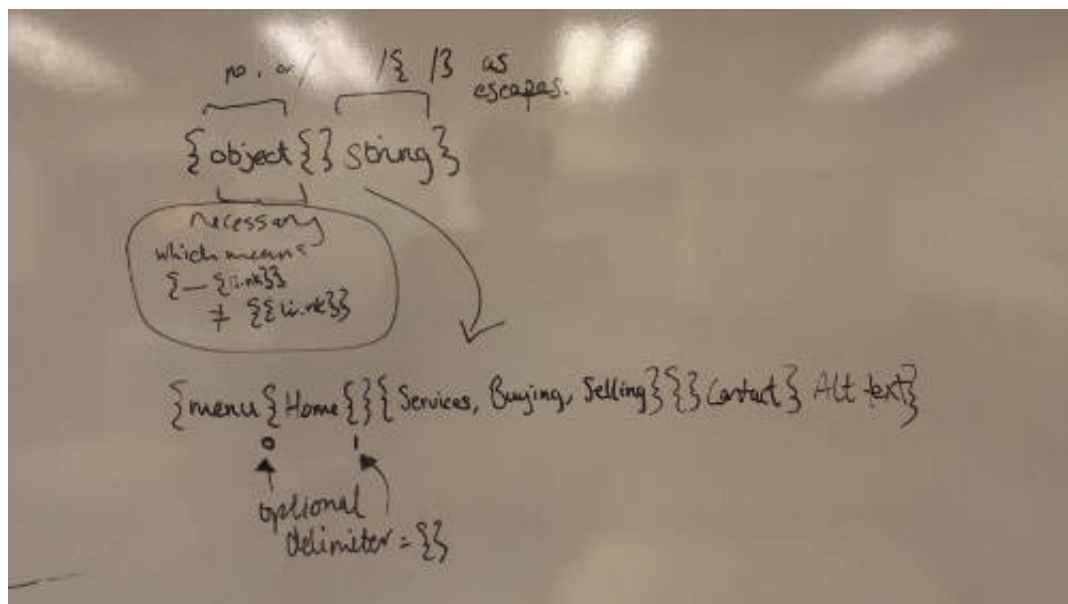 no . or / /{ /} as
escapes.
{object{} string}
necessary
which means
{— {link}}
≠ {{link}}
{menu{Home{}{Services, Buying, Selling}{}Contact} Alt text}
0 1
optional
delimiter = {}